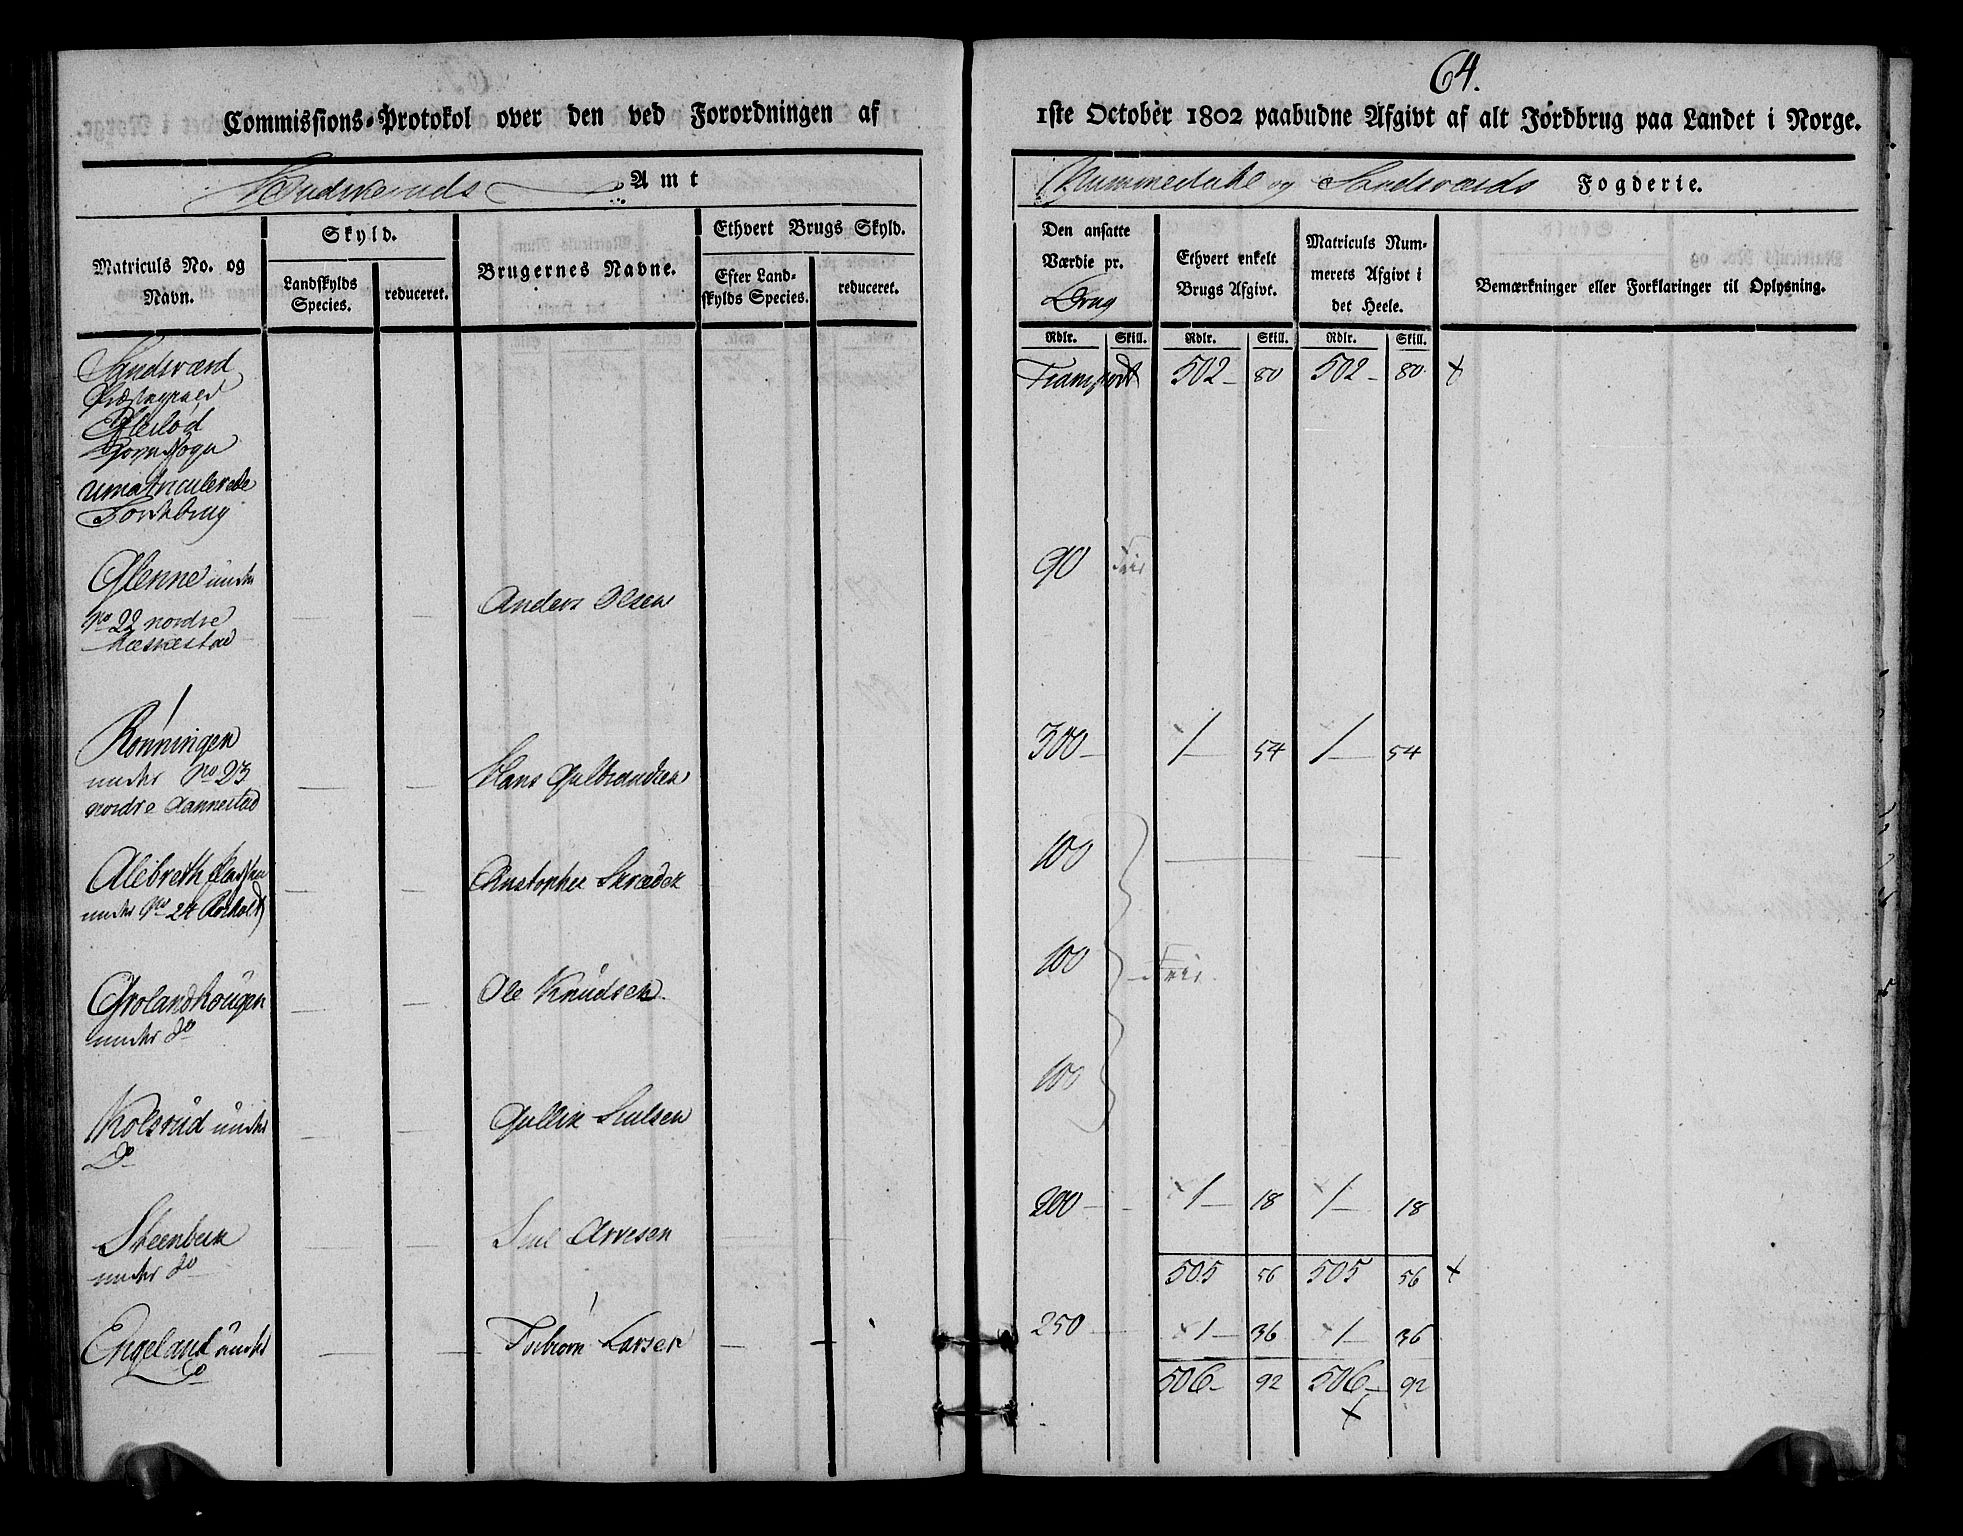 64.
Commissions-Protokol over den ved Forordningen af
1ste October 1802 paabudne Afgivt af alt Jordbrug paa Landet i Norge.
Buskeruds Amt
Nummedahl og Sandsværds Fogderie.
Matriculs No. og Navn.
Skyld.
Landskylds Species.
reduceret.
Brugernes Navne.
Ethvert Brugs Skyld.
Efter Landskylds Species.
reduceret.
Den ansatte Værdie pr. Brug
Ethvert enkelt Brugs Afgivt.
Matriculs Nummerets Afgivt i det Heele.
Bemærkninger eller Forklaringer til Oplysning.
Rdlr. Skill. Rdlr. Skill. Rdlr. Skill.
Sandsværd
Præstegield
Transport 502 - 80 502 - 80
Sogn
umatriculerede
Jordbrug
Glenne under
No 22 nordre
Anders Olsen 90 Frie
Rønningen
under No 23
nordre
Hans Gulbrandsen 300 - 1 - 54 1 - 54
Alebreth
under No 24
Christopher Skræder 100
Grolandhougen
under do
Ole Knudsen 100 Frie
Kolsrud under
Do
Gullik 100
Steenbek
under do
Arvesen 200 - 1 - 18 1 - 18
505 56 505 56
Engeland under
Do
Torbiørn Larsen 250 - 1 - 36 1 - 36
506 - 92 506 - 92